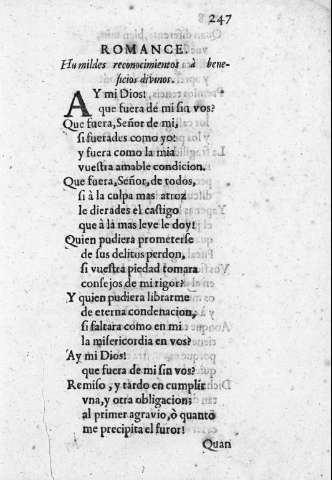 247
ROMANCE.
Humildes reconocimientos à bene-
ficios divinos.
AY mi Dios!
que fuera de mi sin vos?
Que fuera, Señor de mi,
si fuerades como yo:
y fuera como la mia
vuestra amable condicion.
Que fuera, Señor, de todos,
si à la culpa mas atroz
le dierades el castigo
que à la mas leve le doy!
Quien pudiera prometerse
de sus delitos perdon,
si vuestra piedad tomara
consejos de mi rigor?
Y quien pudiera librarme
de eterna condenacion,
si faltara como en mi
la misericordia en vos?
Ay mi Dios!
que fuera de mi sin vos?
Remiso, y tardo en cumplir
vna, y otra obligacion;
al primer agravio, ò quanto
me precipita el furor!
Quan